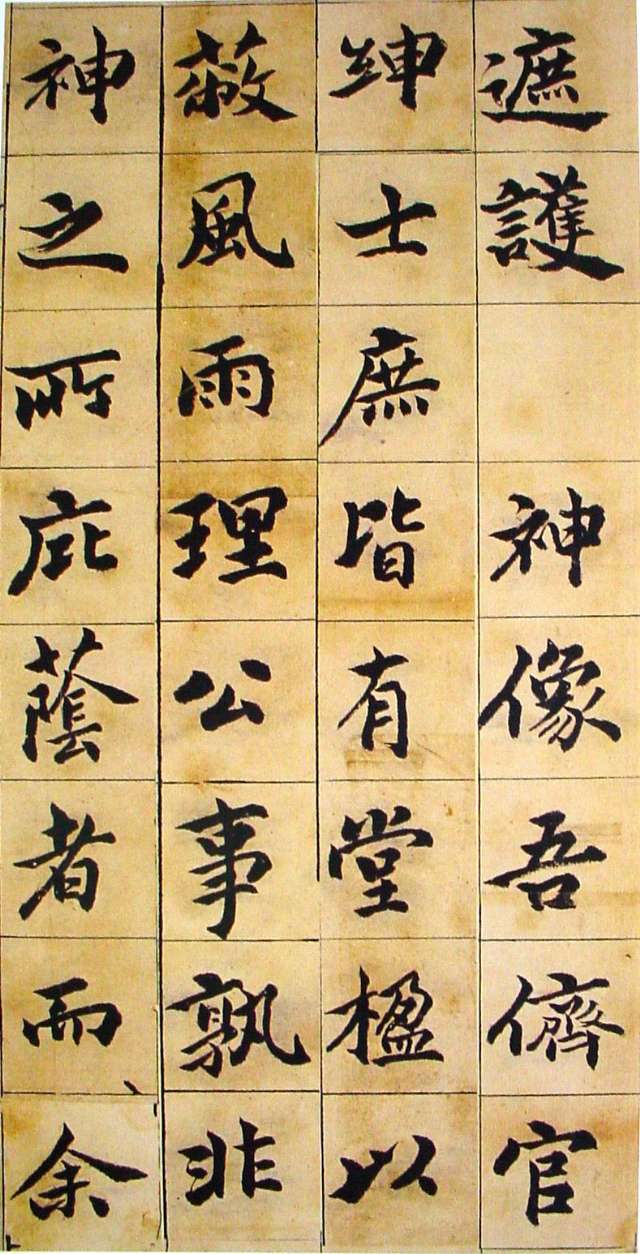 遮護 神像吾儕官
紳士庶皆有堂楹以
蔽風雨理公事孰非
神之所庇蔭者而余